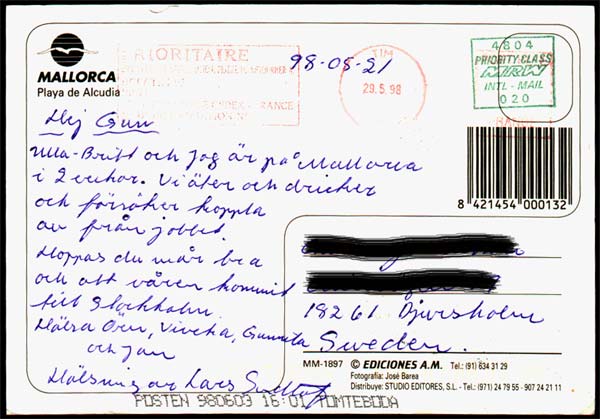 MALLORCA
Playa de Alcudia
PRIORITAIRE
98-05-21
TIM
29.5.98
4804
PRIORITY CLASS
MRW
INTL - MAIL
020
Hej Gun
Ulla-Britt och jag är på Mallorca
i 2 veckor. Vi äter och dricker
och försöker koppla
av från jobbet.
Hoppas du mår bra
och att våren kommit
till Stockholm.
Hälsa Örn, Viveka, Gunnita
och Jan
Hälsning av Lars
8 421454 000132
18261 Djursholm
Sweden.
MM-1897 © EDICIONES A.M. Tel.: (91) 634 31 29
Fotografía: José Barea
Distribuye: STUDIO EDITORES, S.L. - Tel.: (971) 24 79 55 - 907 24 21 11
POSTEN 980603 16:01 TOMTEBODA